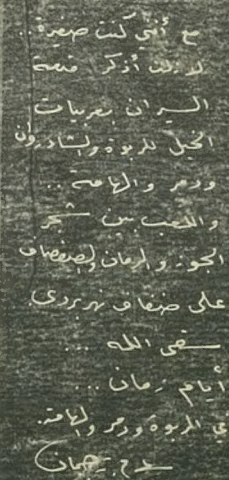 مع أنني كنت صغيرة..
لا زلت أذكر متعة
السيران بعربات
الخيل للربوة والشادروان
ودمر والهامة ..
واللعب بين شجر
الجوز والرمان والصفصاف
على ضفاف نهر بردى
سقى الله ...
أيام زمان ...
في الربوة ودمر والهامة.